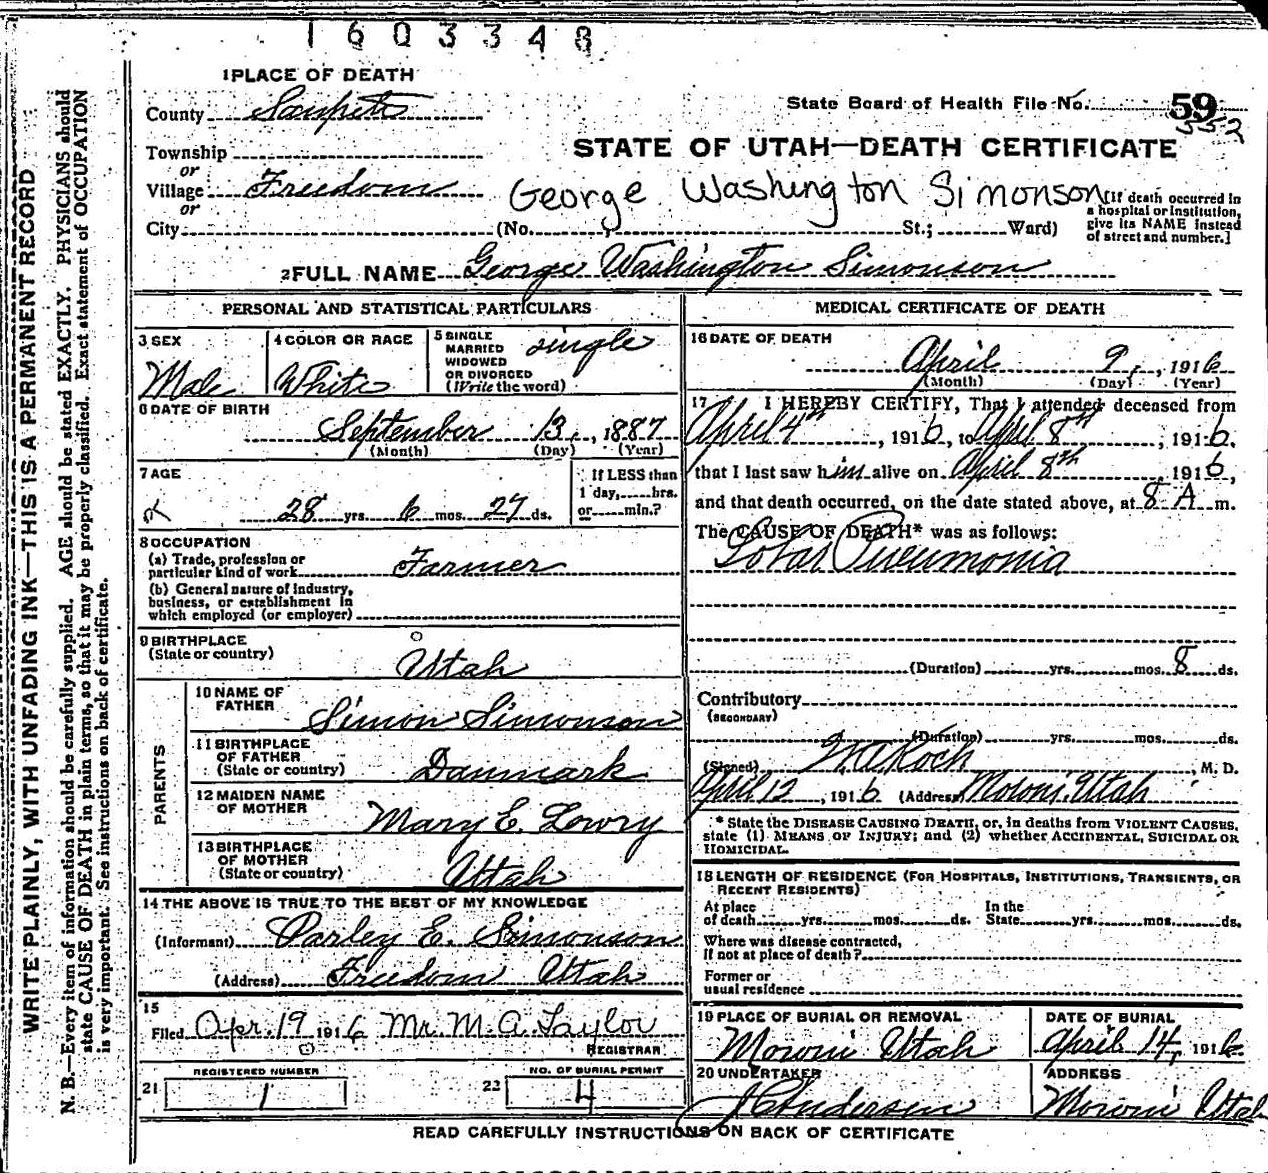 1603348
1 PLACE OF DEATH
County Sanpete
State Board of Health File No. 59
552
Township
STATE OF UTAH—DEATH CERTIFICATE
or
Village Freedom
George Washington Simonson
or
City (No. St.; Ward)
[If death occurred in
a hospital or institution,
give its NAME instead
of street and number.]
2 FULL NAME George Washington Simonson
PERSONAL AND STATISTICAL PARTICULARS
3 SEX
Male
4 COLOR OR RACE
White
5 SINGLE
MARRIED
WIDOWED
OR DIVORCED
(Write the word)
single
6 DATE OF BIRTH
September 13, 1887
(Month) (Day) (Year)
7 AGE
28 yrs. 6 mos. 27 ds.
If LESS than
1 day, hrs.
or min.?
8 OCCUPATION
(a) Trade, profession or
particular kind of work Farmer
(b) General nature of Industry,
business, or establishment in
which employed (or employer)
9 BIRTHPLACE
(State or country)
Utah
PARENTS
10 NAME OF
FATHER
Simon Simonson
11 BIRTHPLACE
OF FATHER
(State or country) Danmark
12 MAIDEN NAME
OF MOTHER
Mary E. Lowry
13 BIRTHPLACE
OF MOTHER
(State or country) Utah
14 THE ABOVE IS TRUE TO THE BEST OF MY KNOWLEDGE
(Informant) Parley E. Simonson
(Address) Freedom Utah
15
Filed Apr. 19 1916 Mr. M. A. Taylor
REGISTRAR
REGISTERED NUMBER
21 1
NO. OF BURIAL PERMIT
22 4
MEDICAL CERTIFICATE OF DEATH
16 DATE OF DEATH
April 9, 1916
(Month) (Day) (Year)
17 I HEREBY CERTIFY, That I attended deceased from
April 4th, 1916, to April 8th, 1916.
that I last saw him alive on April 8th 1916,
and that death occurred, on the date stated above, at 8 A m.
The CAUSE OF DEATH* was as follows:
Lobar Pneumonia
(Duration) yrs. mos. 8 ds.
Contributory
(SECONDARY)
(Duration) yrs. mos. ds.
(Signed) Koch, M. D.
April 12, 1916 (Address) Moroni Utah
* State the DISEASE CAUSING DEATH, or, in deaths from VIOLENT CAUSES,
state (1) MEANS OF INJURY; and (2) whether ACCIDENTAL, SUICIDAL OR
HOMICIDAL.
18 LENGTH OF RESIDENCE (FOR HOSPITALS, INSTITUTIONS, TRANSIENTS, OR
RECENT RESIDENTS)
At place In the
of death yrs. mos. ds. State yrs. mos. ds.
Where was disease contracted,
If not at place of death?
Former or
usual residence
19 PLACE OF BURIAL OR REMOVAL
Moroni Utah
DATE OF BURIAL
April 14, 1916
20 UNDERTAKER
J C Andersen
ADDRESS
Moroni Utah
READ CAREFULLY INSTRUCTIONS ON BACK OF CERTIFICATE
WRITE PLAINLY, WITH UNFADING INK—THIS IS A PERMANENT RECORD
N. B.—Every item of information should be carefully supplied. AGE should be stated EXACTLY. PHYSICIANS should
state CAUSE OF DEATH in plain terms, so that it may be properly classified. Exact statement of OCCUPATION
is very important. See instructions on back of certificate.